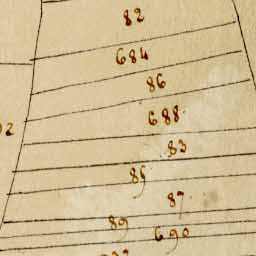 82
684
86
688
83
85
87
89
690